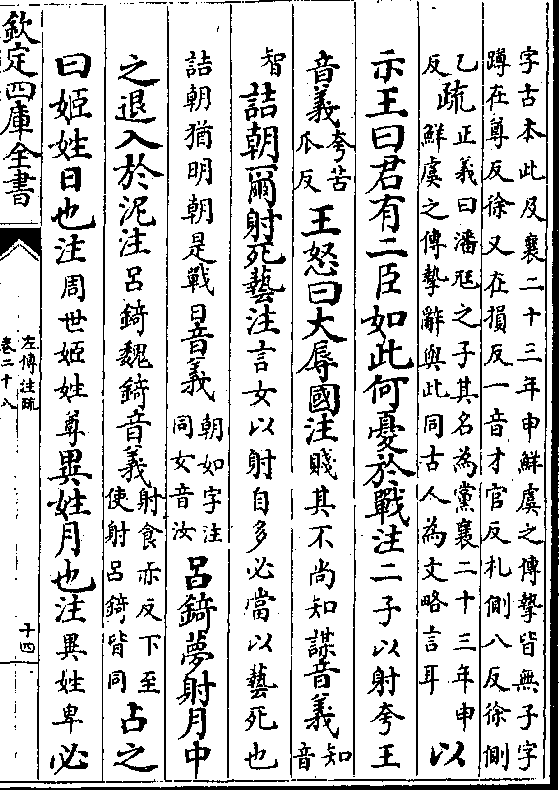 字古本此及襄二十三年申鮮虞之傳摯皆無子字
蹲在尊反徐又在損反一音才官反札側八反徐側
乙疏正義曰潘尫之子其名為黨襄二十三年申
反鮮虞之傳摯辭與此同古人為文略言耳以
示王曰君有二臣如此何憂於戰注二子以射夸王
音義夸苦瓜反王怒曰大辱國注賤其不尚知謀音義知音
智詰朝爾射死藝注言女以射自多必當以藝死也
詰朝猶明朝是戰日音義朝如字注同女音汝呂錡夢射月中
之退入於泥注呂錡魏錡音義射食亦反下至使射呂錡皆同占之
曰姬姓日也注周世姬姓尊異姓月也注異姓卑必
欽定四庫全書
左傳注疏
卷二十八
十四